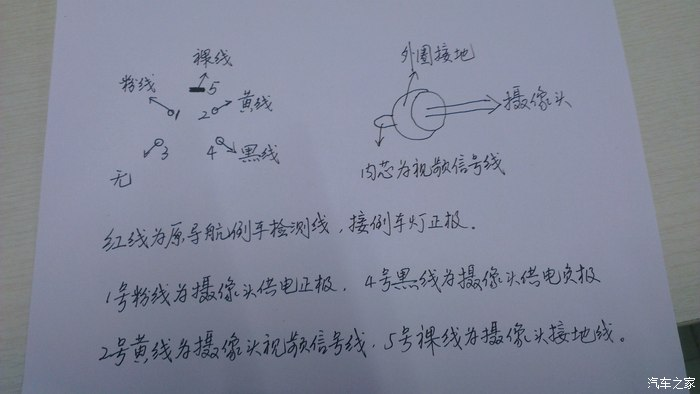 裸线
粉线
5
1
2
黄线
3
4
黑线
无
外圈接地
摄像头
内芯为视频信号线
红线为原导航倒车检测线，接倒车灯正极．
1号粉线为摄像头供电正极．4号黑线为摄像头供电负极
2号黄线为摄像头视频信号线．5号裸线为摄像头接地线。
汽车之家